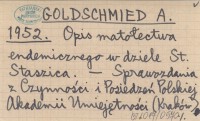 GOLDSCHMIED A.
1952. Opis matołectwa
endemicznego w dziele St.
Staszica. — Sprawozdania
z Czynności i Posiedzeń Polskiej
Akademii Umiejętności (Kraków)